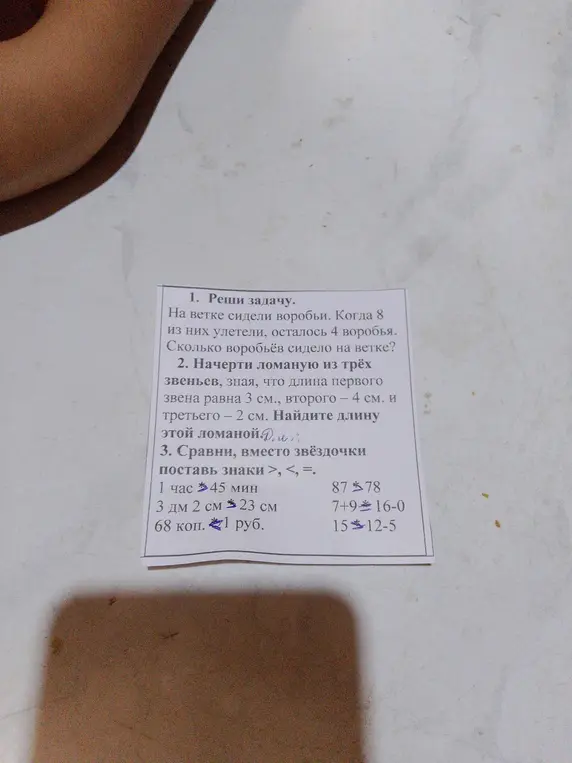 1. Реши задачу.
На ветке сидели воробьи. Когда 8
из них улетели, осталось 4 воробья.
Сколько воробьёв сидело на ветке?
2. Начерти ломаную из трёх
звеньев, зная, что длина первого
звена равна 3 см., второго – 4 см. и
третьего – 2 см. Найдите длину
этой ломаной.
3. Сравни, вместо звёздочки
поставь знаки >, <, =.
1 час > 45 мин 87 > 78
3 дм 2 см > 23 см 7+9 = 16-0
68 коп. < 1 руб. 15 > 12-5